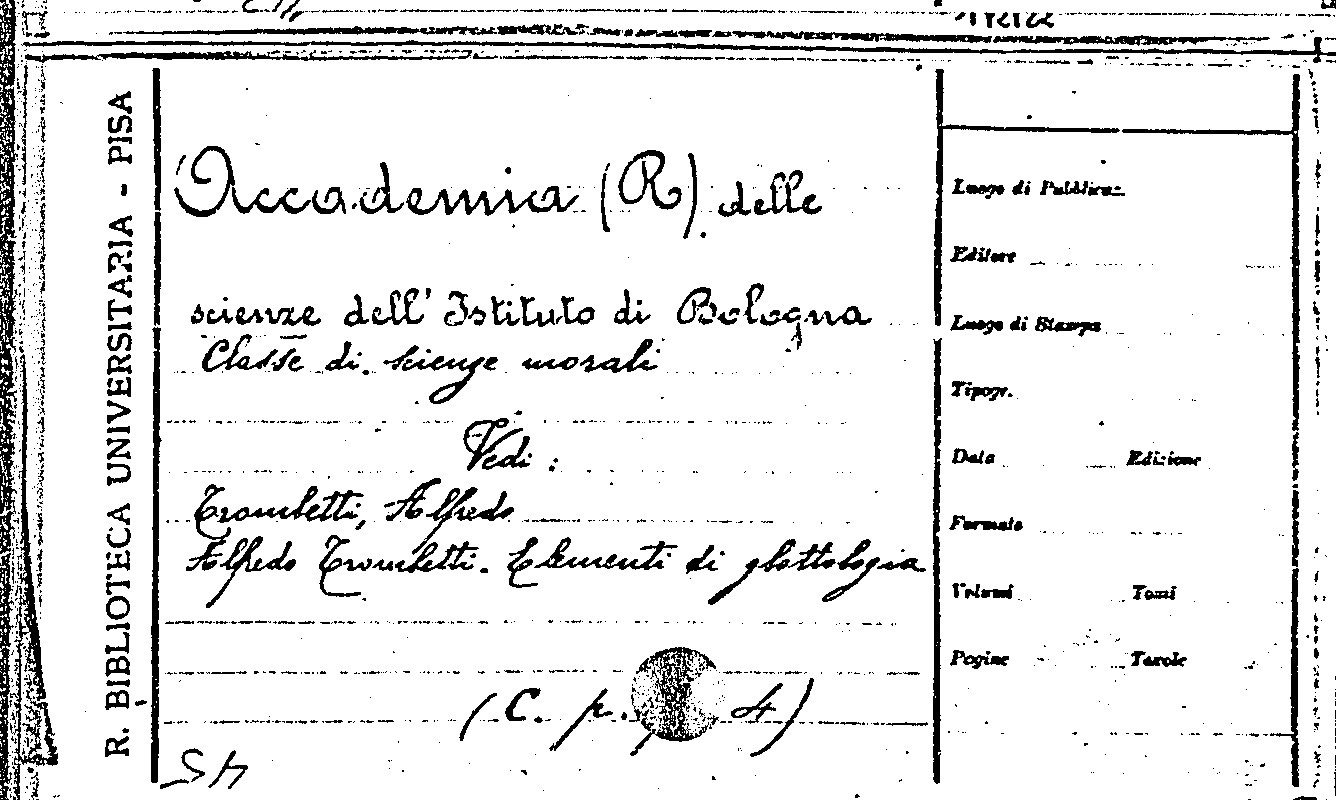 R. BIBLIOTECA UNIVERSITARIA - PISA
Accademia (R). delle
scienze dell' Istituto di Bologna
Classe di scienze morali
Vedi :
Trombetti, Alfredo
Alfredo Trombetti. Elementi di glottologia
(C. p. 4)
Luogo di Pubblicaz.
Editore
Luogo di Stampa
Tipogr.
Data Edizione
Formato
Volumi Tomi
Pagine Tavole